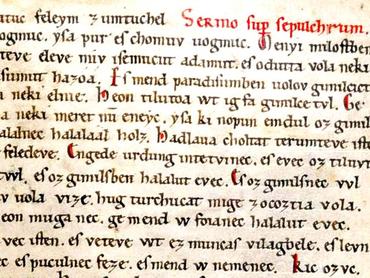 atuc feleym ꝫ umtuchel Sermo sup sepulchrum.
uogmuc. ysa pur es chomuv uogmuc. Menyi milostben
teve eleve miv isemucut adamut. es odutta vola neki
sumut hazoa. Es mend paradisumben uolov gimilcictu
a neki elnie. Heon tilutoa wt ig fa gimilce tvl. Ge
a neki meret nu eneyc. ysa ki nopun emdul oz gimil
halalnec halalaal holz. Hadlaua choltat terumteve iste
feledeve. Engede urdung intetvinec. es evec oz tiluvt
tvl. es oz gimilsben halalut evec. Es oz gimilsnec vvl
v uola vize. hug turchucat mige zocoztia vola.
eon muga nec. ge mend w foianec halalut evec.
vec isten. es veteve wt ez muncas vilagbele. es levn
ec es puculnec feze. es mend w nemenec. Kic ozvc.